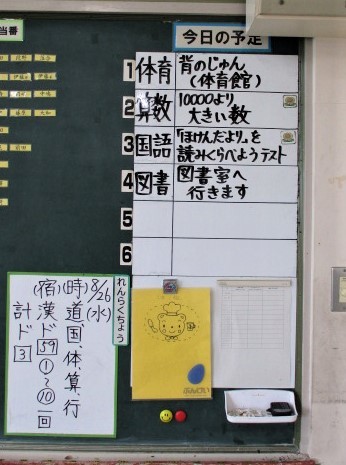 当番
今日の予定
1 体育 背のじゅん
(体育館)
2 算数 10000より
大きい数
3 国語 「ほけんだより」を
読みくらべようテスト
4 図書 図書室へ
行きます
5
6
れんらくちょう
8/26(水)
(時)道、国、体、算、行
(宿)漢ド59①〜⑩一回
計ド3